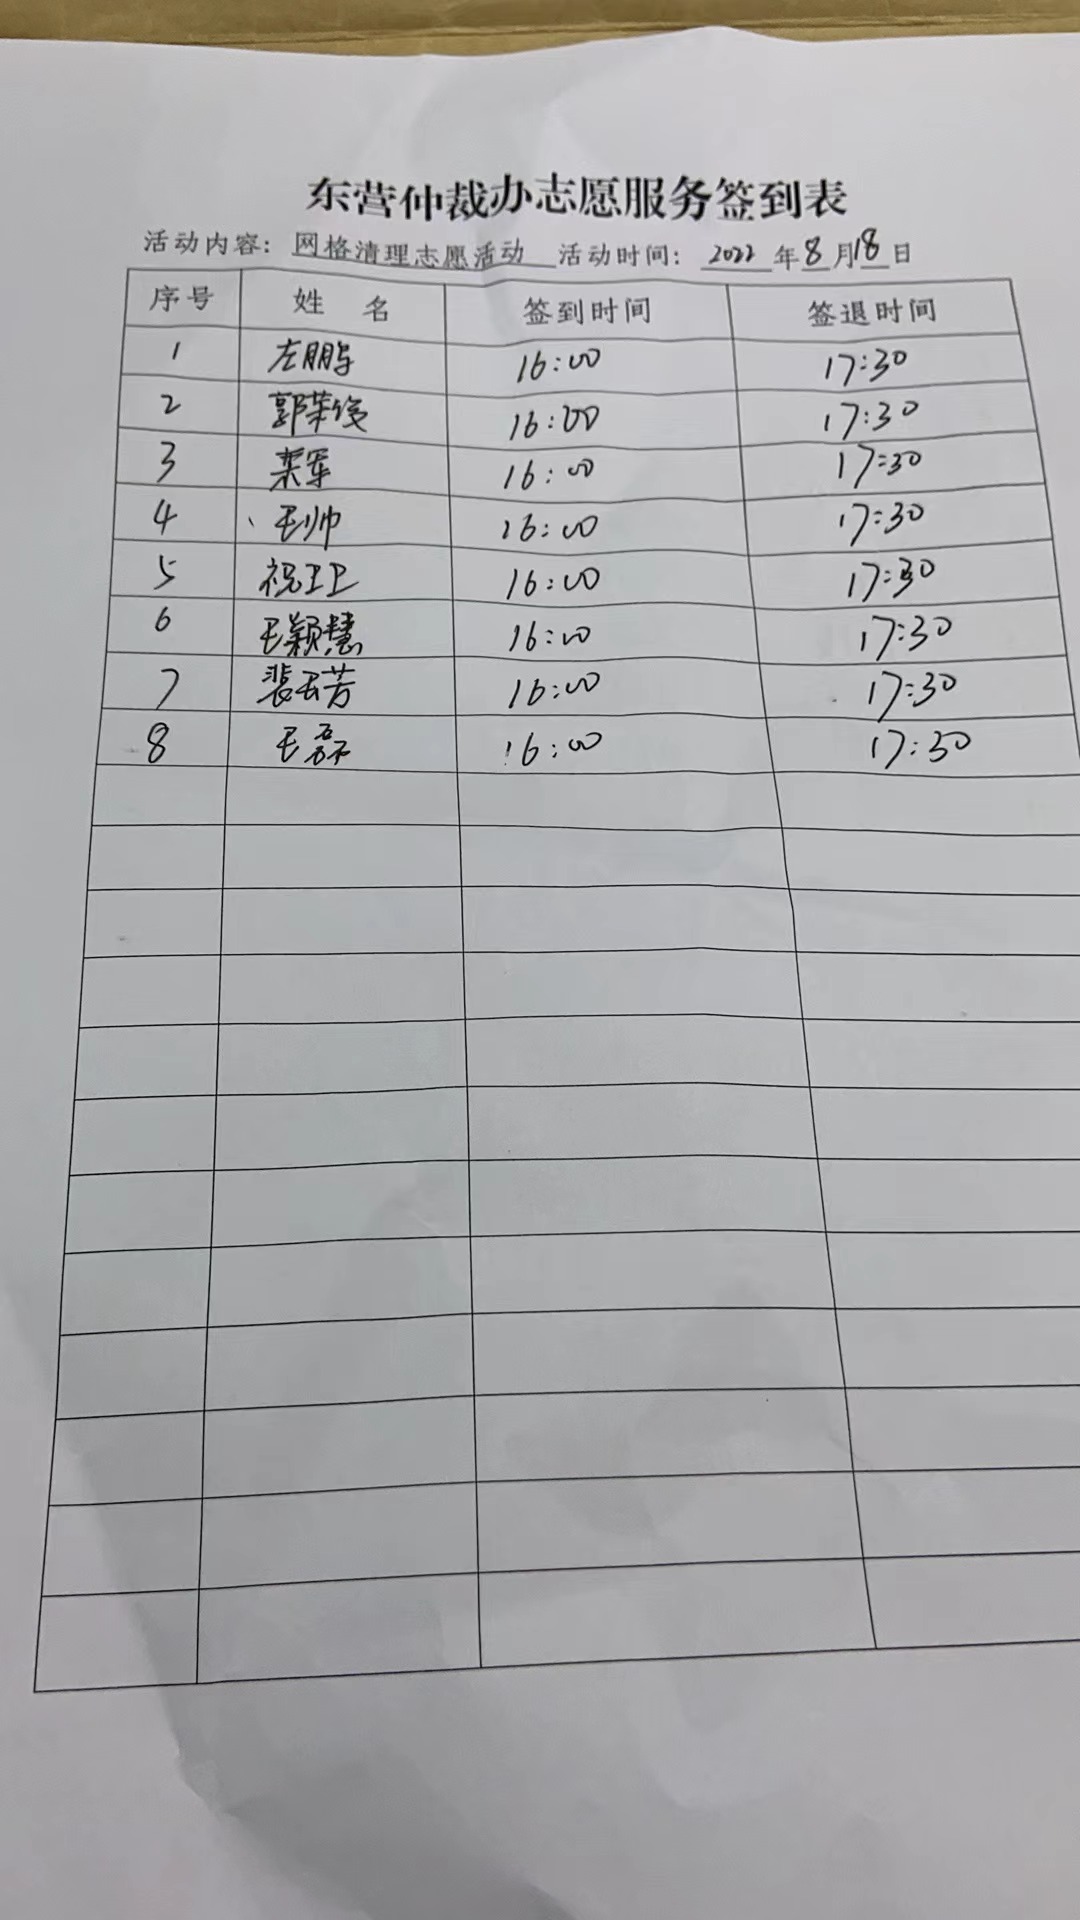 东营仲裁办志愿服务签到表
活动内容：网格清理志愿活动 活动时间：2022年8月18日
序号 姓名 签到时间 签退时间
1 左鹏 16:00 17:30
2 郭荣俊 16:00 17:30
3 栾军 16:00 17:30
4 王帅 16:00 17:30
5 祝卫卫 16:00 17:30
6 王颖慧 16:00 17:30
7 裴玉芳 16:00 17:30
8 王磊 16:00 17:30